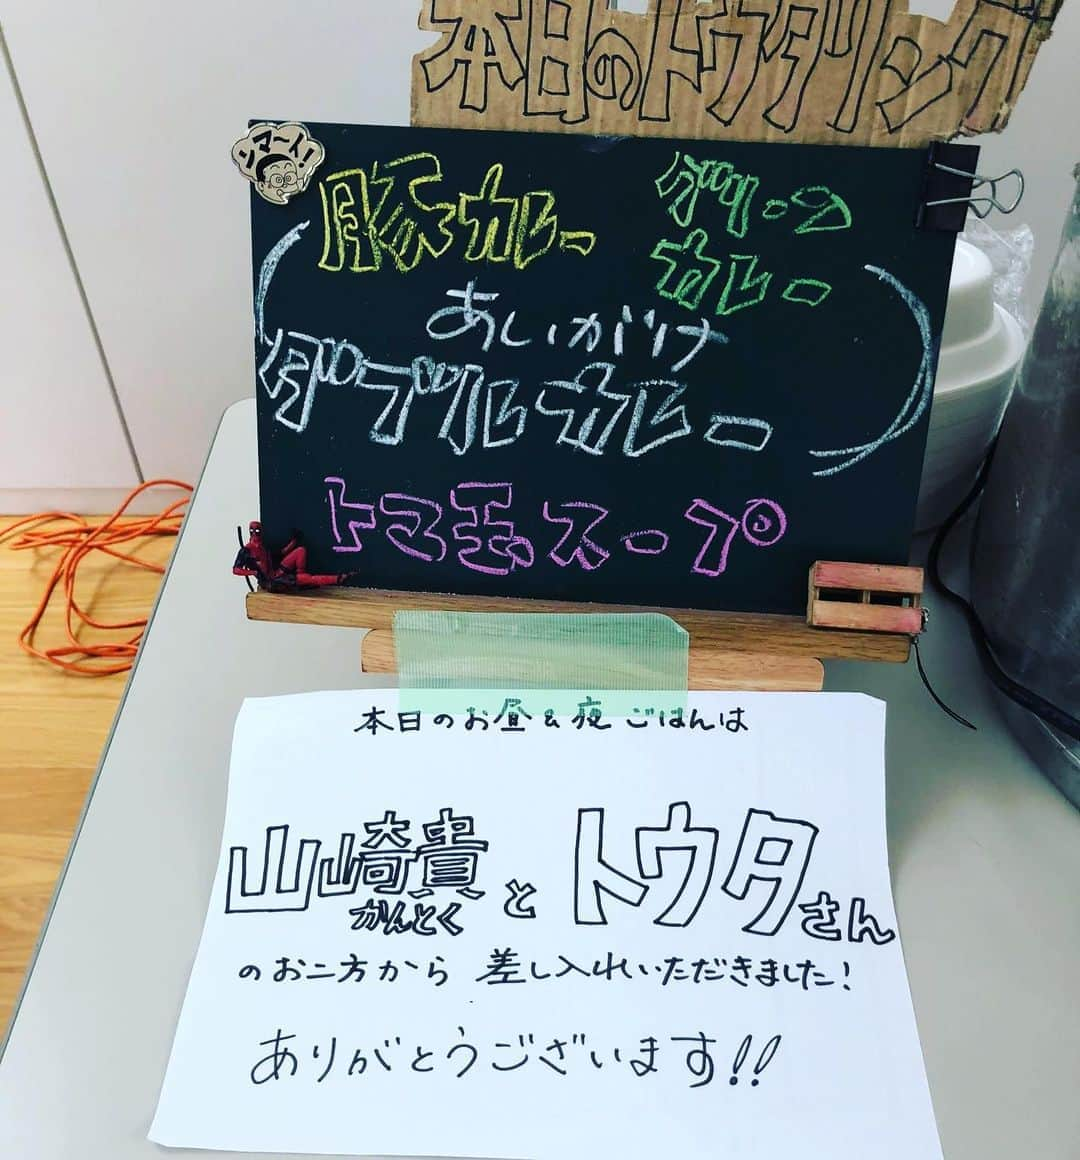 本日のトウタリング
ンマ〜イ!
豚カレー
グリーン
カレー
あいがけ
ダブルカレー
トマ玉スープ
本日のお昼&夜ごはんは
山崎貴とトウタさん
かんとく
のお二方から 差し入れいただきました!
ありがとうございます!!